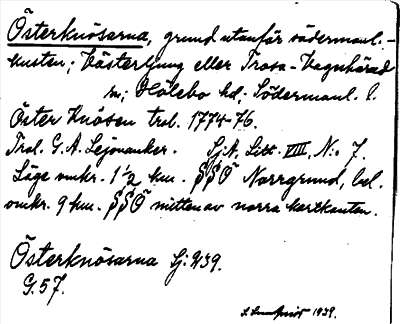 Österknösarna, grund utanför södermanl.-
kusten; Västerljung eller Trosa-Vagnhärad
sn; Hölebo hd, Södermanl. l.
Öster Knösen trol. 1774-76.
Trol. G. A. Lejonanker. Sj.A. Litt. VIII, N:o 7.
Läge omkr. 1 1/2 km. SSÖ Norrgrund, bel.
omkr. 9 km. SSÖ mitten av norra kartkanten.
Österknösarna Sj: 239.
G. 57.
1939.